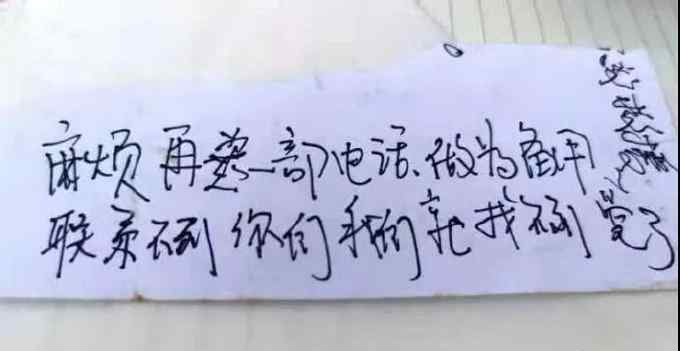 麻烦再募一部电话、做为备用
联系不到你们我们就找不到党了